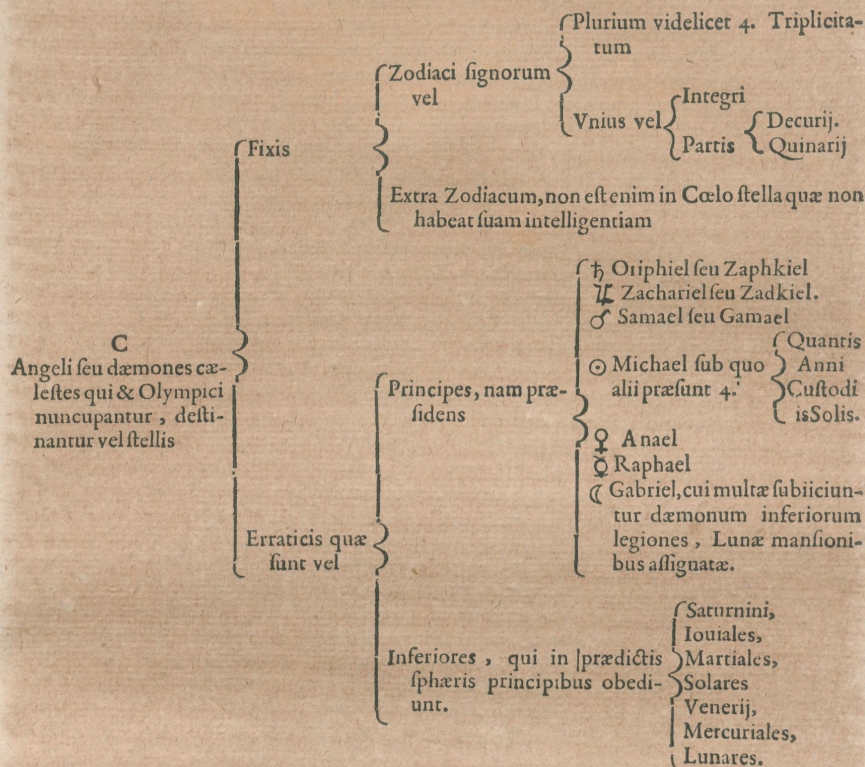 C
Angeli ſeu dæmones cæ-
leſtes qui & Olympici
nuncupantur, deſti-
nantur vel ſtellis
Fixis
Zodiaci ſignorum
vel
Plurium videlicet 4. Triplicita-
tum
Vnius vel
Integri
Partis
Decurij.
Quinarij
Extra Zodiacum, non eſt enim in Cœlo ſtella quæ non
habeat ſuam intelligentiam
Erraticis quæ
ſunt vel
Principes, nam præ-
ſidens
♄ Oriphiel ſeu Zaphkiel
♃ Zachariel ſeu Zadkiel.
♂ Samael ſeu Gamael
☉ Michael ſub quo
alii præſunt 4.
Quantis
Anni
Cuſtodi
isSolis.
♀ Anael
☿ Raphael
☾ Gabriel, cui multæ ſubiiciun-
tur dæmonum inferiorum
legiones, Lunæ manſioni-
bus aſſignatæ.
Inferiores, qui in prædictis
ſphæris principibus obedi-
unt.
Saturnini,
Iouiales,
Martiales,
Solares
Venerij,
Mercuriales,
Lunares.